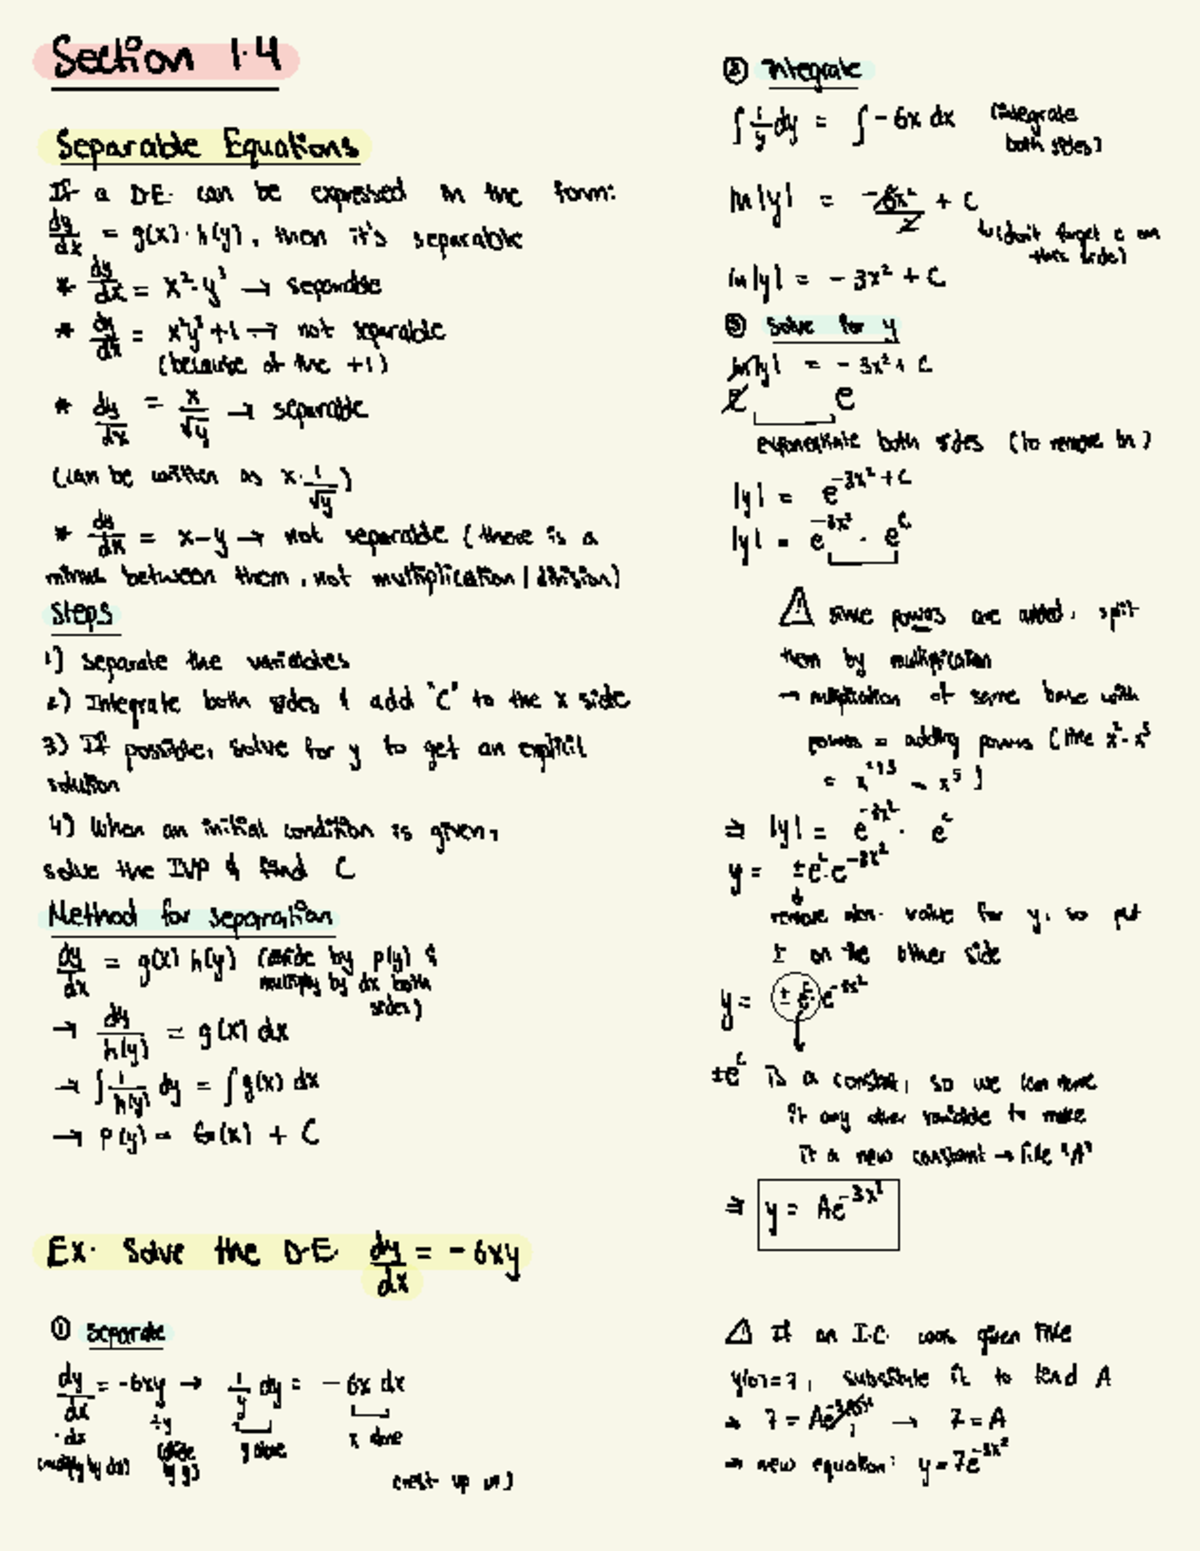 Section 1.4
Separable Equations
If a D.E. can be expressed in the form:
dy/dx = g(x)·h(y), then it's separable
* dy/dx = x²·y³ → separable
* dy/dx = x²y³+1 → not separable
(because of the +1)
* dy/dx = x/√y → separable
(can be written as x·1/√y)
* dy/dx = x-y → not separable (there is a
minus between them, not multiplication/division)
Steps
1) Separate the variables
2) Integrate both sides & add "C" to the x side
3) If possible, solve for y to get an explicit
solution
4) When an initial condition is given,
solve the IVP & find C
Method for separation
dy/dx = g(x) h(y) (divide by p(y) &
multiply by dx both
sides)
→ dy/h(y) = g(x) dx
→ ∫ 1/h(y) dy = ∫ g(x) dx
→ P(y) = G(x) + C
Ex. Solve the D.E. dy/dx = -6xy
① Separate
dy/dx = -6xy → 1/y dy = -6x dx
·dx ÷y y alone x alone
(multiply by dx) (divide by y)
(next up
② Integrate
∫ 1/y dy = ∫ -6x dx (integrate
both sides)
ln|y| = -6x²/2 + C
↳(don't forget c on
this side)
ln|y| = -3x² + C
③ Solve for y
ln|y| = -3x² + C
e e
exponentiate both sides (to remove ln)
|y| = e^(-3x²+C)
|y| = e^(-3x²) · e^C
⚠ since powers are added, split
them by multiplication
→ multiplication of same base with
powers = adding powers (like x²·x³
= x²⁺³ = x⁵)
⇒ |y| = e^(-3x²) · e^C
y = ±e^C·e^(-3x²)
remove abs. value for y, so put
± on the other side
y = ±e^C·e^(-3x²)
±e^C is a constant, so we can name
it any other variable to make
it a new constant → like "A"
⇒ y = Ae^(-3x²)
⚠ If an I.C. was given like
y(0)=7, substitute it to find A
→ 7 = Ae → 7 = A
→ new equation: y = 7e^(-3x²)